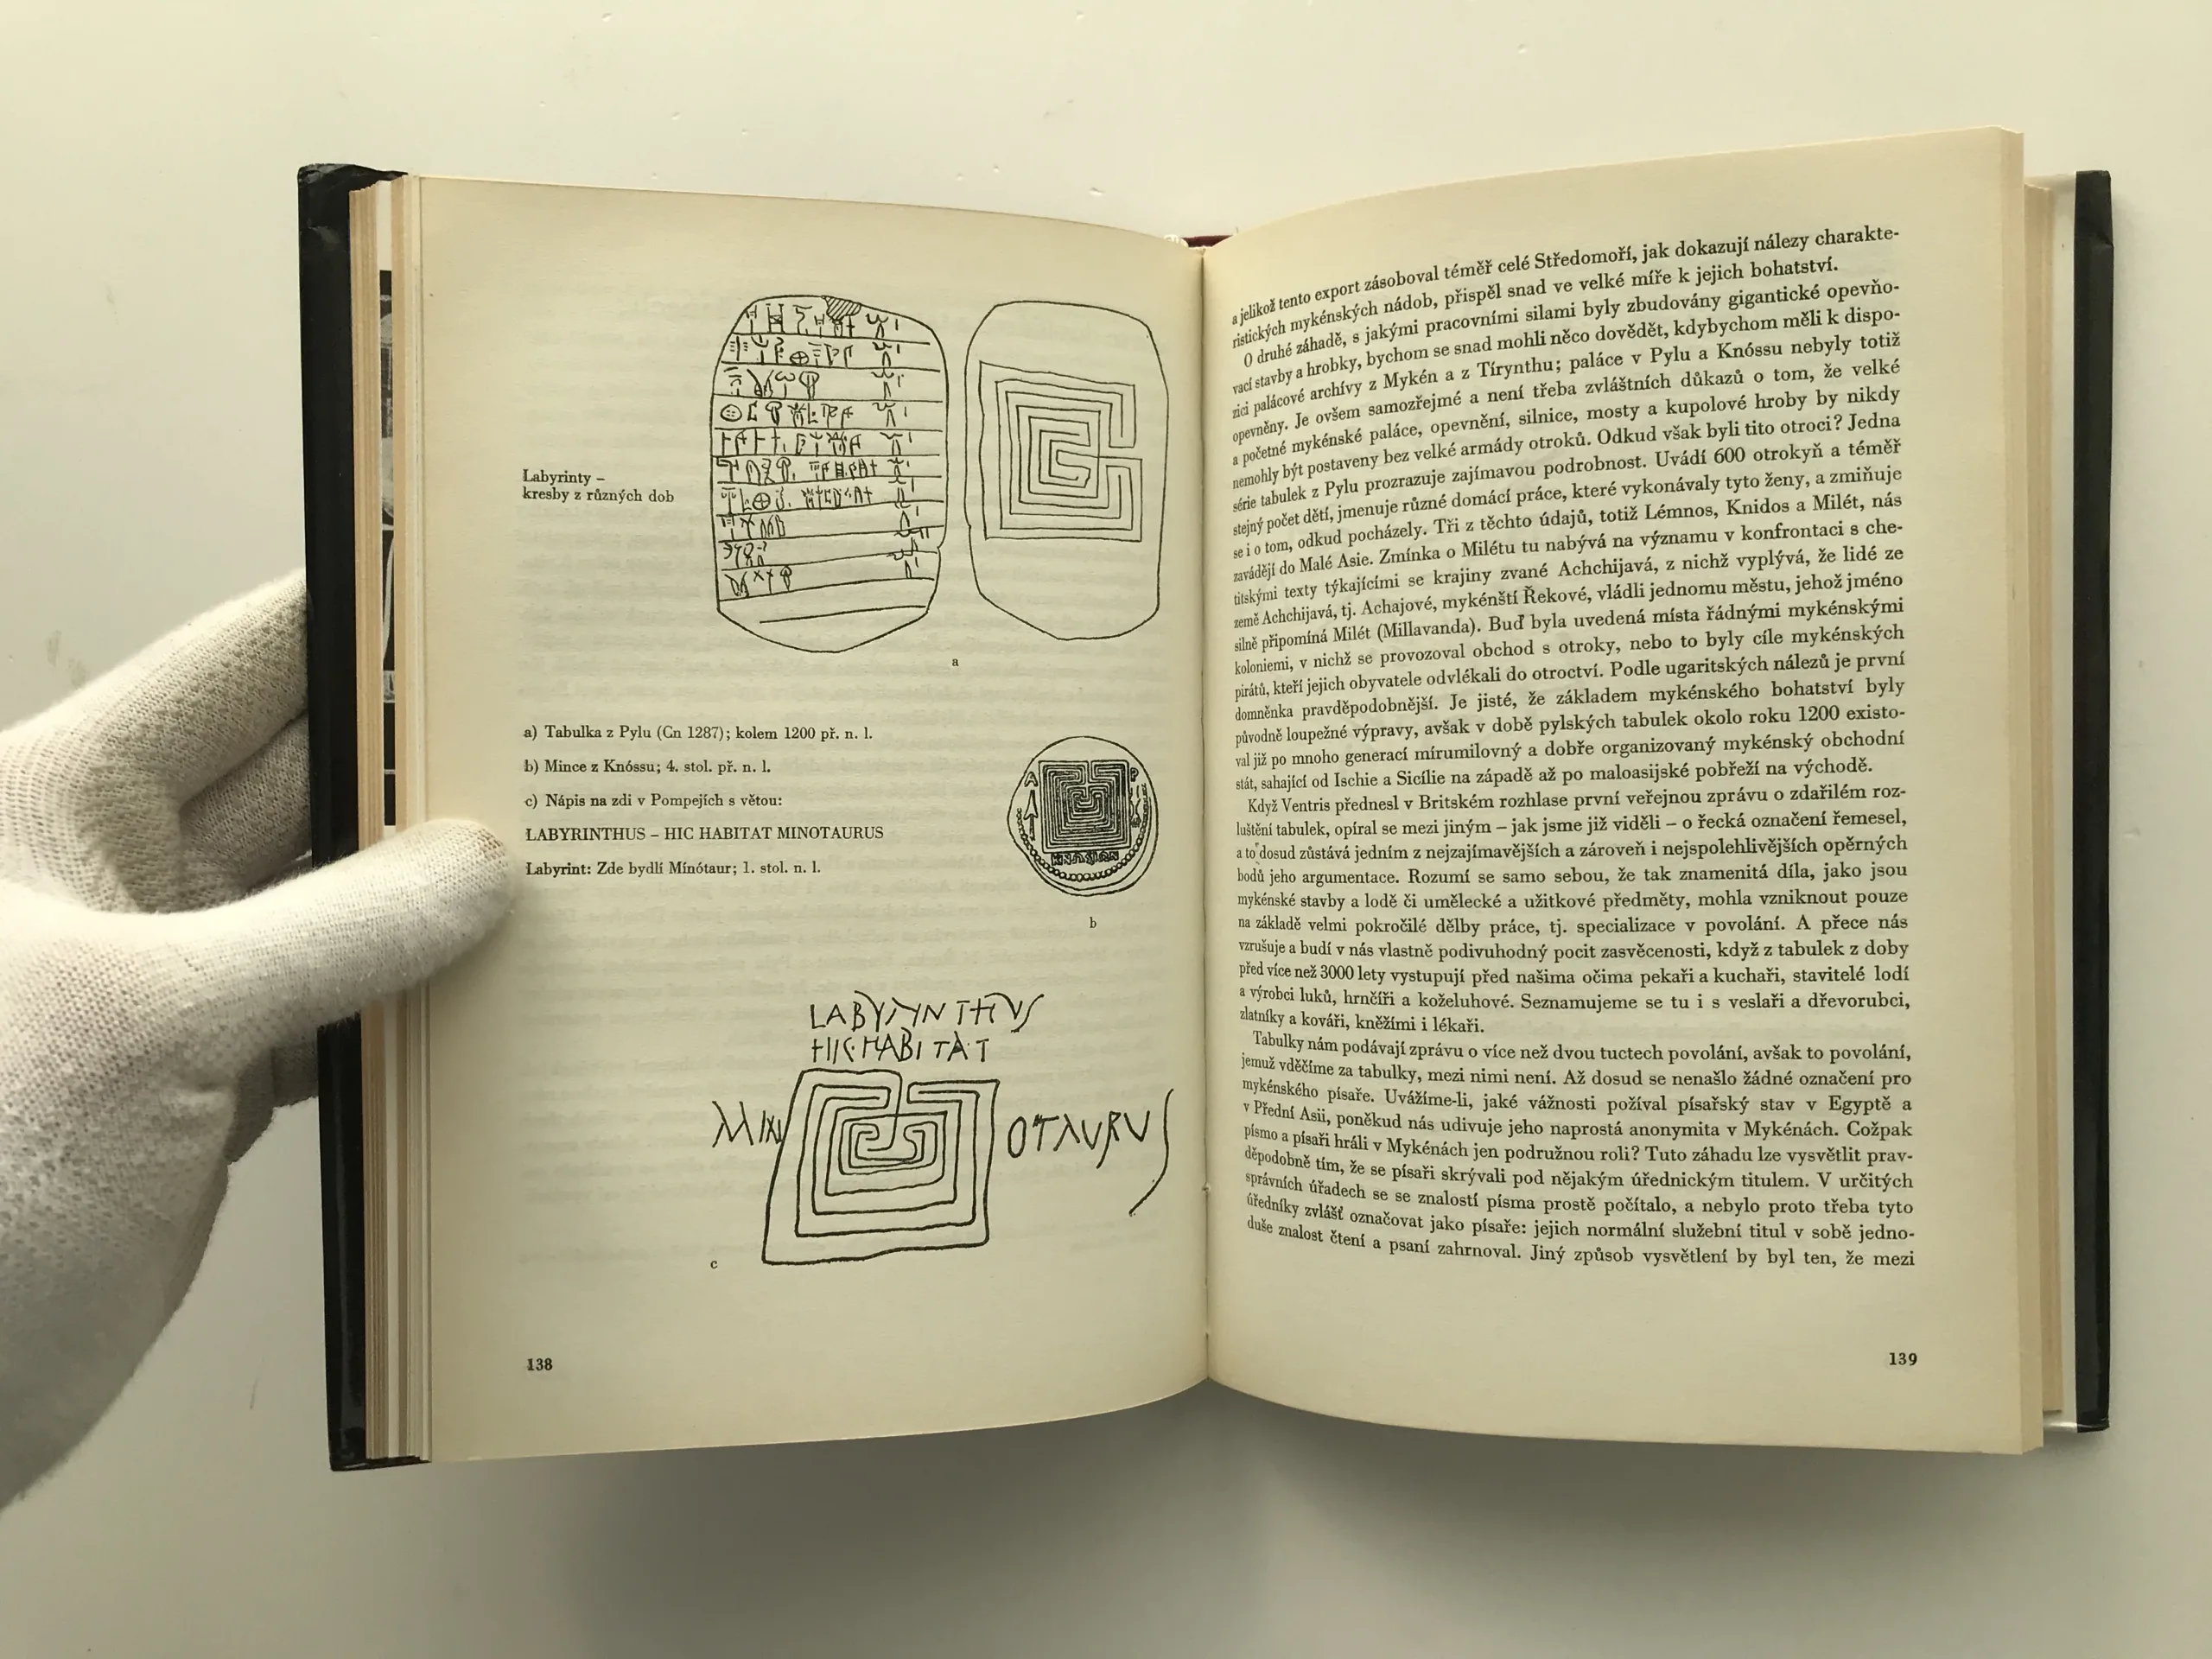 Labyrinty –
kresby z různých dob
a
a) Tabulka z Pylu (Cn 1287); kolem 1200 př. n. l.
b) Mince z Knóssu; 4. stol. př. n. l.
c) Nápis na zdi v Pompejích s větou:
LABYRINTHUS – HIC HABITAT MINOTAURUS
Labyrint: Zde bydlí Mínótaur; 1. stol. n. l.
A P
b
LABYRINTHUS
HIC HABITAT
MINOTAURUS
c
138
a jelikož tento export zásoboval téměř celé Středomoří, jak dokazují nálezy charakte-
ristických mykénských nádob, přispěl snad ve velké míře k jejich bohatství.
O druhé záhadě, s jakými pracovními silami byly zbudovány gigantické opevňo-
vací stavby a hrobky, bychom se snad mohli něco dovědět, kdybychom měli k dispo-
zici palácové archívy z Mykén a z Tírynthu; paláce v Pylu a Knóssu nebyly totiž
opevněny. Je ovšem samozřejmé a není třeba zvláštních důkazů o tom, že velké
a početné mykénské paláce, opevnění, silnice, mosty a kupolové hroby by nikdy
nemohly být postaveny bez velké armády otroků. Odkud však byli tito otroci? Jedna
série tabulek z Pylu prozrazuje zajímavou podrobnost. Uvádí 600 otrokyň a téměř
stejný počet dětí, jmenuje různé domácí práce, které vykonávaly tyto ženy, a zmiňuje
se i o tom, odkud pocházely. Tři z těchto údajů, totiž Lémnos, Knidos a Milét, nás
zavádějí do Malé Asie. Zmínka o Milétu tu nabývá na významu v konfrontaci s che-
titskými texty týkajícími se krajiny zvané Achchijavá, z nichž vyplývá, že lidé ze
země Achchijavá, tj. Achajové, mykénští Řekové, vládli jednomu městu, jehož jméno
silně připomíná Milét (Millavanda). Buď byla uvedená místa řádnými mykénskými
koloniemi, v nichž se provozoval obchod s otroky, nebo to byly cíle mykénských
pirátů, kteří jejich obyvatele odvlékali do otroctví. Podle ugaritských nálezů je první
domněnka pravděpodobnější. Je jisté, že základem mykénského bohatství byly
původně loupežné výpravy, avšak v době pylských tabulek okolo roku 1200 existo-
val již po mnoho generací mírumilovný a dobře organizovaný mykénský obchodní
stát, sahající od Ischie a Sicílie na západě až po maloasijské pobřeží na východě.
Když Ventris přednesl v Britském rozhlase první veřejnou zprávu o zdařilém roz-
luštění tabulek, opíral se mezi jiným – jak jsme již viděli – o řecká označení řemesel,
a to dosud zůstává jedním z nejzajímavějších a zároveň i nejspolehlivějších opěrných
bodů jeho argumentace. Rozumí se samo sebou, že tak znamenitá díla, jako jsou
mykénské stavby a lodě či umělecké a užitkové předměty, mohla vzniknout pouze
na základě velmi pokročilé dělby práce, tj. specializace v povolání. A přece nás
vzrušuje a budí v nás vlastně podivuhodný pocit zasvěcenosti, když z tabulek z doby
před více než 3000 lety vystupují před našima očima pekaři a kuchaři, stavitelé lodí
a výrobci luků, hrnčíři a koželuhové. Seznamujeme se tu i s veslaři a dřevorubci,
zlatníky a kováři, kněžími i lékaři.
Tabulky nám podávají zprávu o více než dvou tuctech povolání, avšak to povolání,
jemuž vděčíme za tabulky, mezi nimi není. Až dosud se nenašlo žádné označení pro
mykénského písaře. Uvážíme-li, jaké vážnosti požíval písařský stav v Egyptě a
v Přední Asii, poněkud nás udivuje jeho naprostá anonymita v Mykénách. Cožpak
písmo a písaři hráli v Mykénách jen podružnou roli? Tuto záhadu lze vysvětlit prav-
děpodobně tím, že se písaři skrývali pod nějakým úřednickým titulem. V určitých
správních úřadech se se znalostí písma prostě počítalo, a nebylo proto třeba tyto
úředníky zvlášť označovat jako písaře: jejich normální služební titul v sobě jedno-
duše znalost čtení a psaní zahrnoval. Jiný způsob vysvětlení by byl ten, že mezi
139